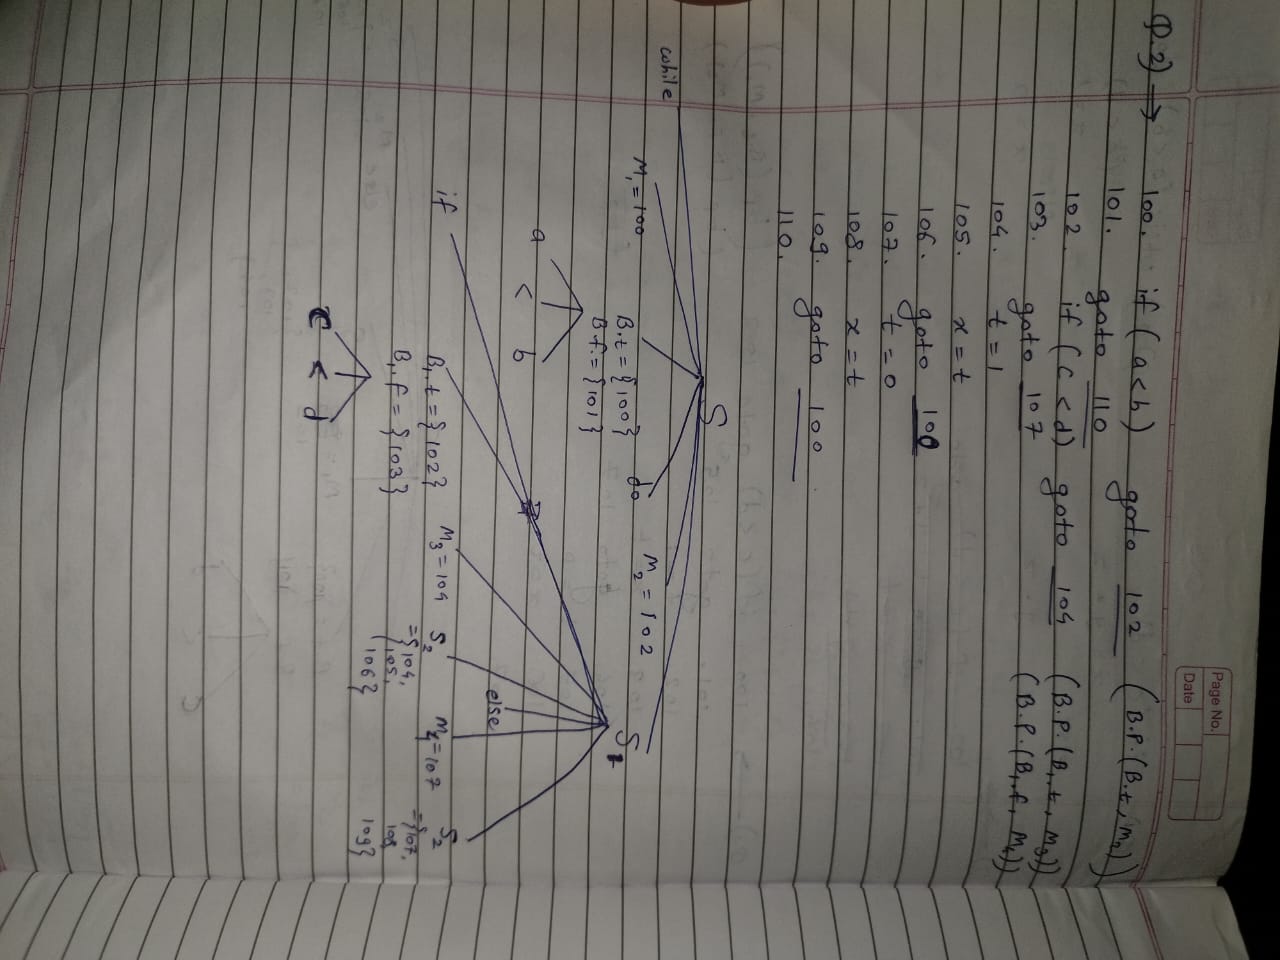 Page No.
Date
Q.2) → 100. if (a<b) goto 102 (B.P.(B.t, M2))
101. goto 110
102. if (c<d) goto 104 (B.P.(B1.t, M3))
103. goto 107 (B.P.(B1.f, M4))
104. t = 1
105. x = t
106. goto 100
107. t = 0
108. x = t
109. goto 100
110.
S
while M1 = 100 B.t = {100} do M2 = 102 S1
B.f. = {101}
a < b
else
if B1.t = {102} M3 = 104 S2 M4 = 107 S2
B1.f = {103} = {104, = {107,
105, 108,
106} 109}
c < d